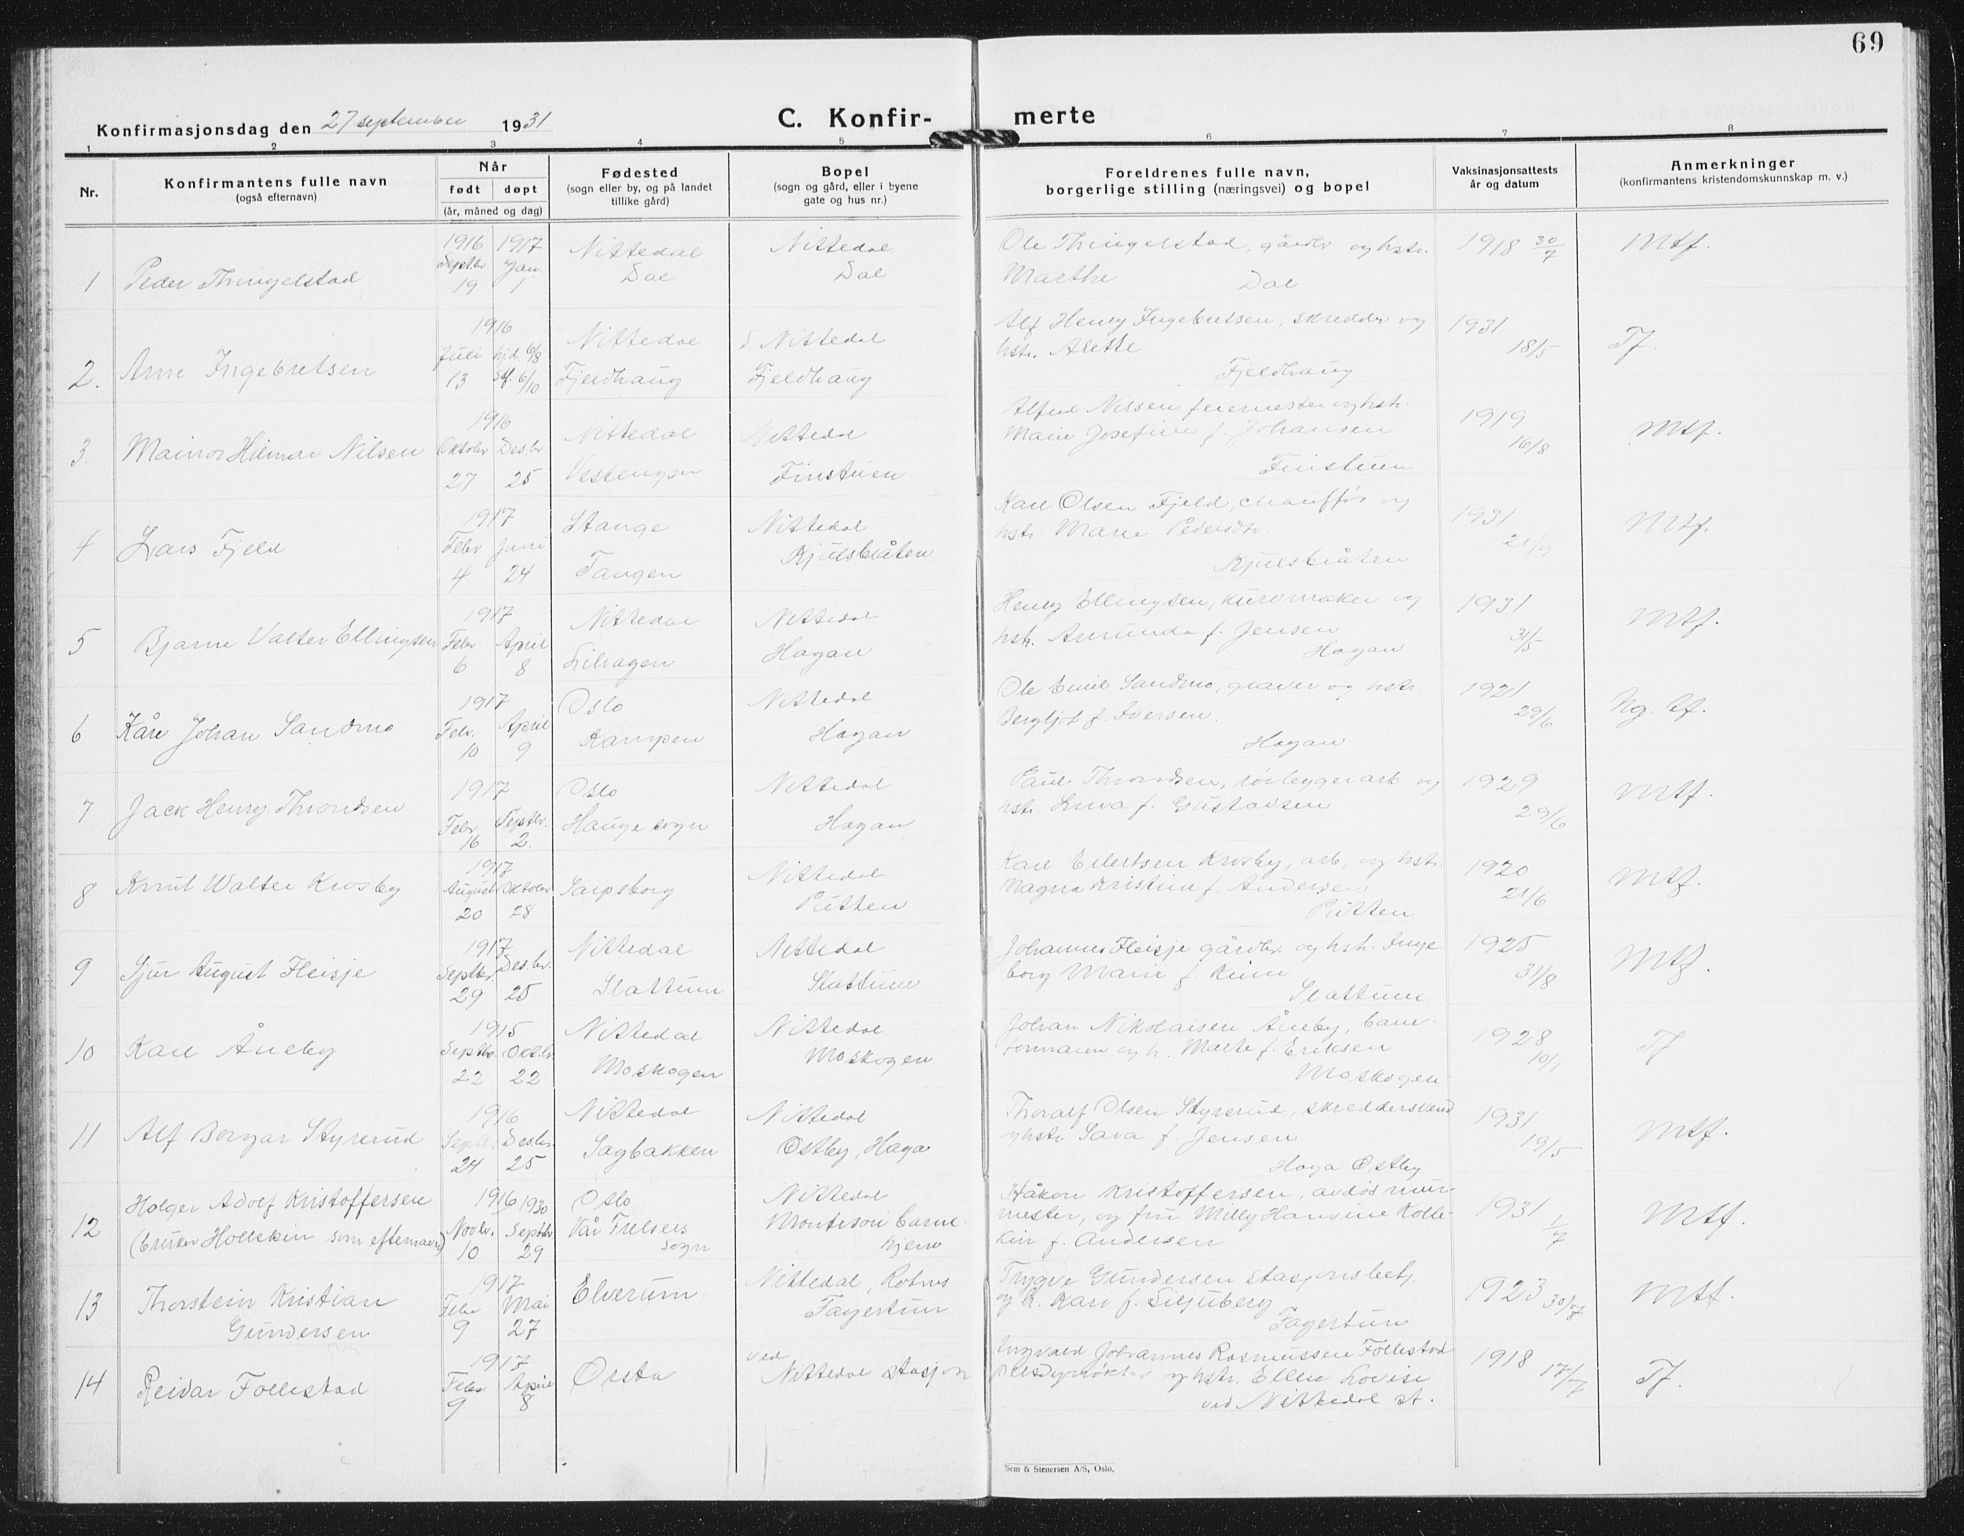 69
Konfirmasjonsdag den 27 september 1931
C. Konfir-
merte
1 2 3 4 5 6 7 8
Nr.
Konfirmantens fulle navn
(også efternavn)
Når
født døpt
(år, måned og dag)
Fødested
(sogn eller by, og på landet
tillike gård)
Bopel
(sogn og gård, eller i byene
gate og hus nr.)
Foreldrenes fulle navn,
borgerlige stilling (næringsvei) og bopel
Vaksinasjonsattests
år og datum
Anmerkninger
(konfirmantens kristendomskunnskap m. v.)
1 Peder Thingelstad
1916 1917
Septbr Jan.
19 1
Nittedal
Dal
Nittedal
Dal
Ole Thingelstad, gårdbr og hstr.
Marthe
Dal
1918 30/7
Mtf.
2. Arne Ingebretsen
1916
Juli hjd. 6/8
13 6/10
Nittedal
Fjeldhaug
Nittedal
Fjeldhaug
Alf Henry Ingebretsen, skredder og
hstr. Alette
Fjeldhaug
1931
18/5
Tf.
3. Mainor Hilmar Nilsen
1916
Oktobr Des.br
27 25
Nittedal
Vestengen
Nittedal
Finstuen
Alfred Nilsen feiermester og hstr.
Marie Josefine f. Johansen
Finstuen
1919
16/8
Mtf.
4 Lars Fjeld
1917
Febr Juni
4 24
Stange
Tangen
Nittedal
Kjulsbråten
Karl Olsen Fjeld, chauffør og
hstr. Marie Pedersdtr.
Kjulsbråten
1931
21/9
Mtf.
5 Bjarne Valter Ellingsen
1917
Febr. April
6 8
Nittedal
Lilhagen
Nittedal
Hagan
Henry Ellingsen, kurvmaker og
hstr. Amunda f. Jensen
Hagan
1931
31/5
Mtf.
6 Kåre Johan Sandmo
1917
Febr. April
10 9
Oslo
Kampen
Nittedal
Hagan
Ole Emil Sandmo, graver og hstr.
Bergljot f. Iversen.
Hagan
1921
29/6
Ng. tf.
7 Jack Henry Throndsen
1917
Febr Septbr.
16 2.
Oslo
Hauge sogn
Nittedal
Hagan
Paul Throndsen, rørleggerarb og
hstr. Lina f. Gustavsen
1929
29/6
Mtf.
8 Knut Walter Krosby
1917
August Oktobr
20 28
Sarpsborg
Nittedal
Putten
Karl Eilertsen Krosby, arb, og hstr.
Magna Kristine f. Andersen
Putten
1920
21/6
Mtf.
9 Sjur August Fleisje
1917
Septbr. Des.br.
29 25
Nittedal
Slattum
Nittedal
Slattum
Johannes Fleisje gårdbr. og hstr. Inge
borg Marie f. Keim
Slattum
1925
31/8
Mtf.
10 Karl Åneby
1915
Septbr Okt.br.
22 22
Nittedal
Moskogen
Nittedal
Moskogen
Johan Nikolaisen Åneby, bane-
formann og h. Marte f. Eriksen
Moskogen
1928
10/1
Tf
11 Alf Borgar Styrerud
1916
Septbr Des.br.
24 25
Nittedal
Sagbakken
Nittedal
Østby, Haga
Thoralf Olsen Styrerud, skreddersvend
og hstr. Sara f. Jensen
Haga Østby
1931
19/5
Mtf.
12 Holger Adolf Kristoffersen
(bruker Hollekin som efternavn)
1916 1930
Novbr. Septbr
10 29
Oslo
Vår Frelsers
sogn
Nittedal
Montison barne-
hjem
Håkon Kristoffersen, avdød mur-
mester, og fru Milly Hansine Kolle-
kin f. Andersen
1931 1/7
Mtf.
13 Thorstein Kristian
Gundersen
1917
Febr Mai
9 27
Elverum
Nittedal, Rotnes
Fagertun
Trygve Gundersen stasjonsbetj.
og h. Kari f. Liljuberg
Fagertun
1923 30/7
Mtf.
14 Reidar Follestad
1917
Febr April
9 8
Ørsta
ved
Nittedal stasjon
Ingvald Johannes Rasmussen Follestad
og hstr. Ellen Lovise
ved Nittedal st.
1918 17/7
Tf.
Sem & Stenersen A/S, Oslo.